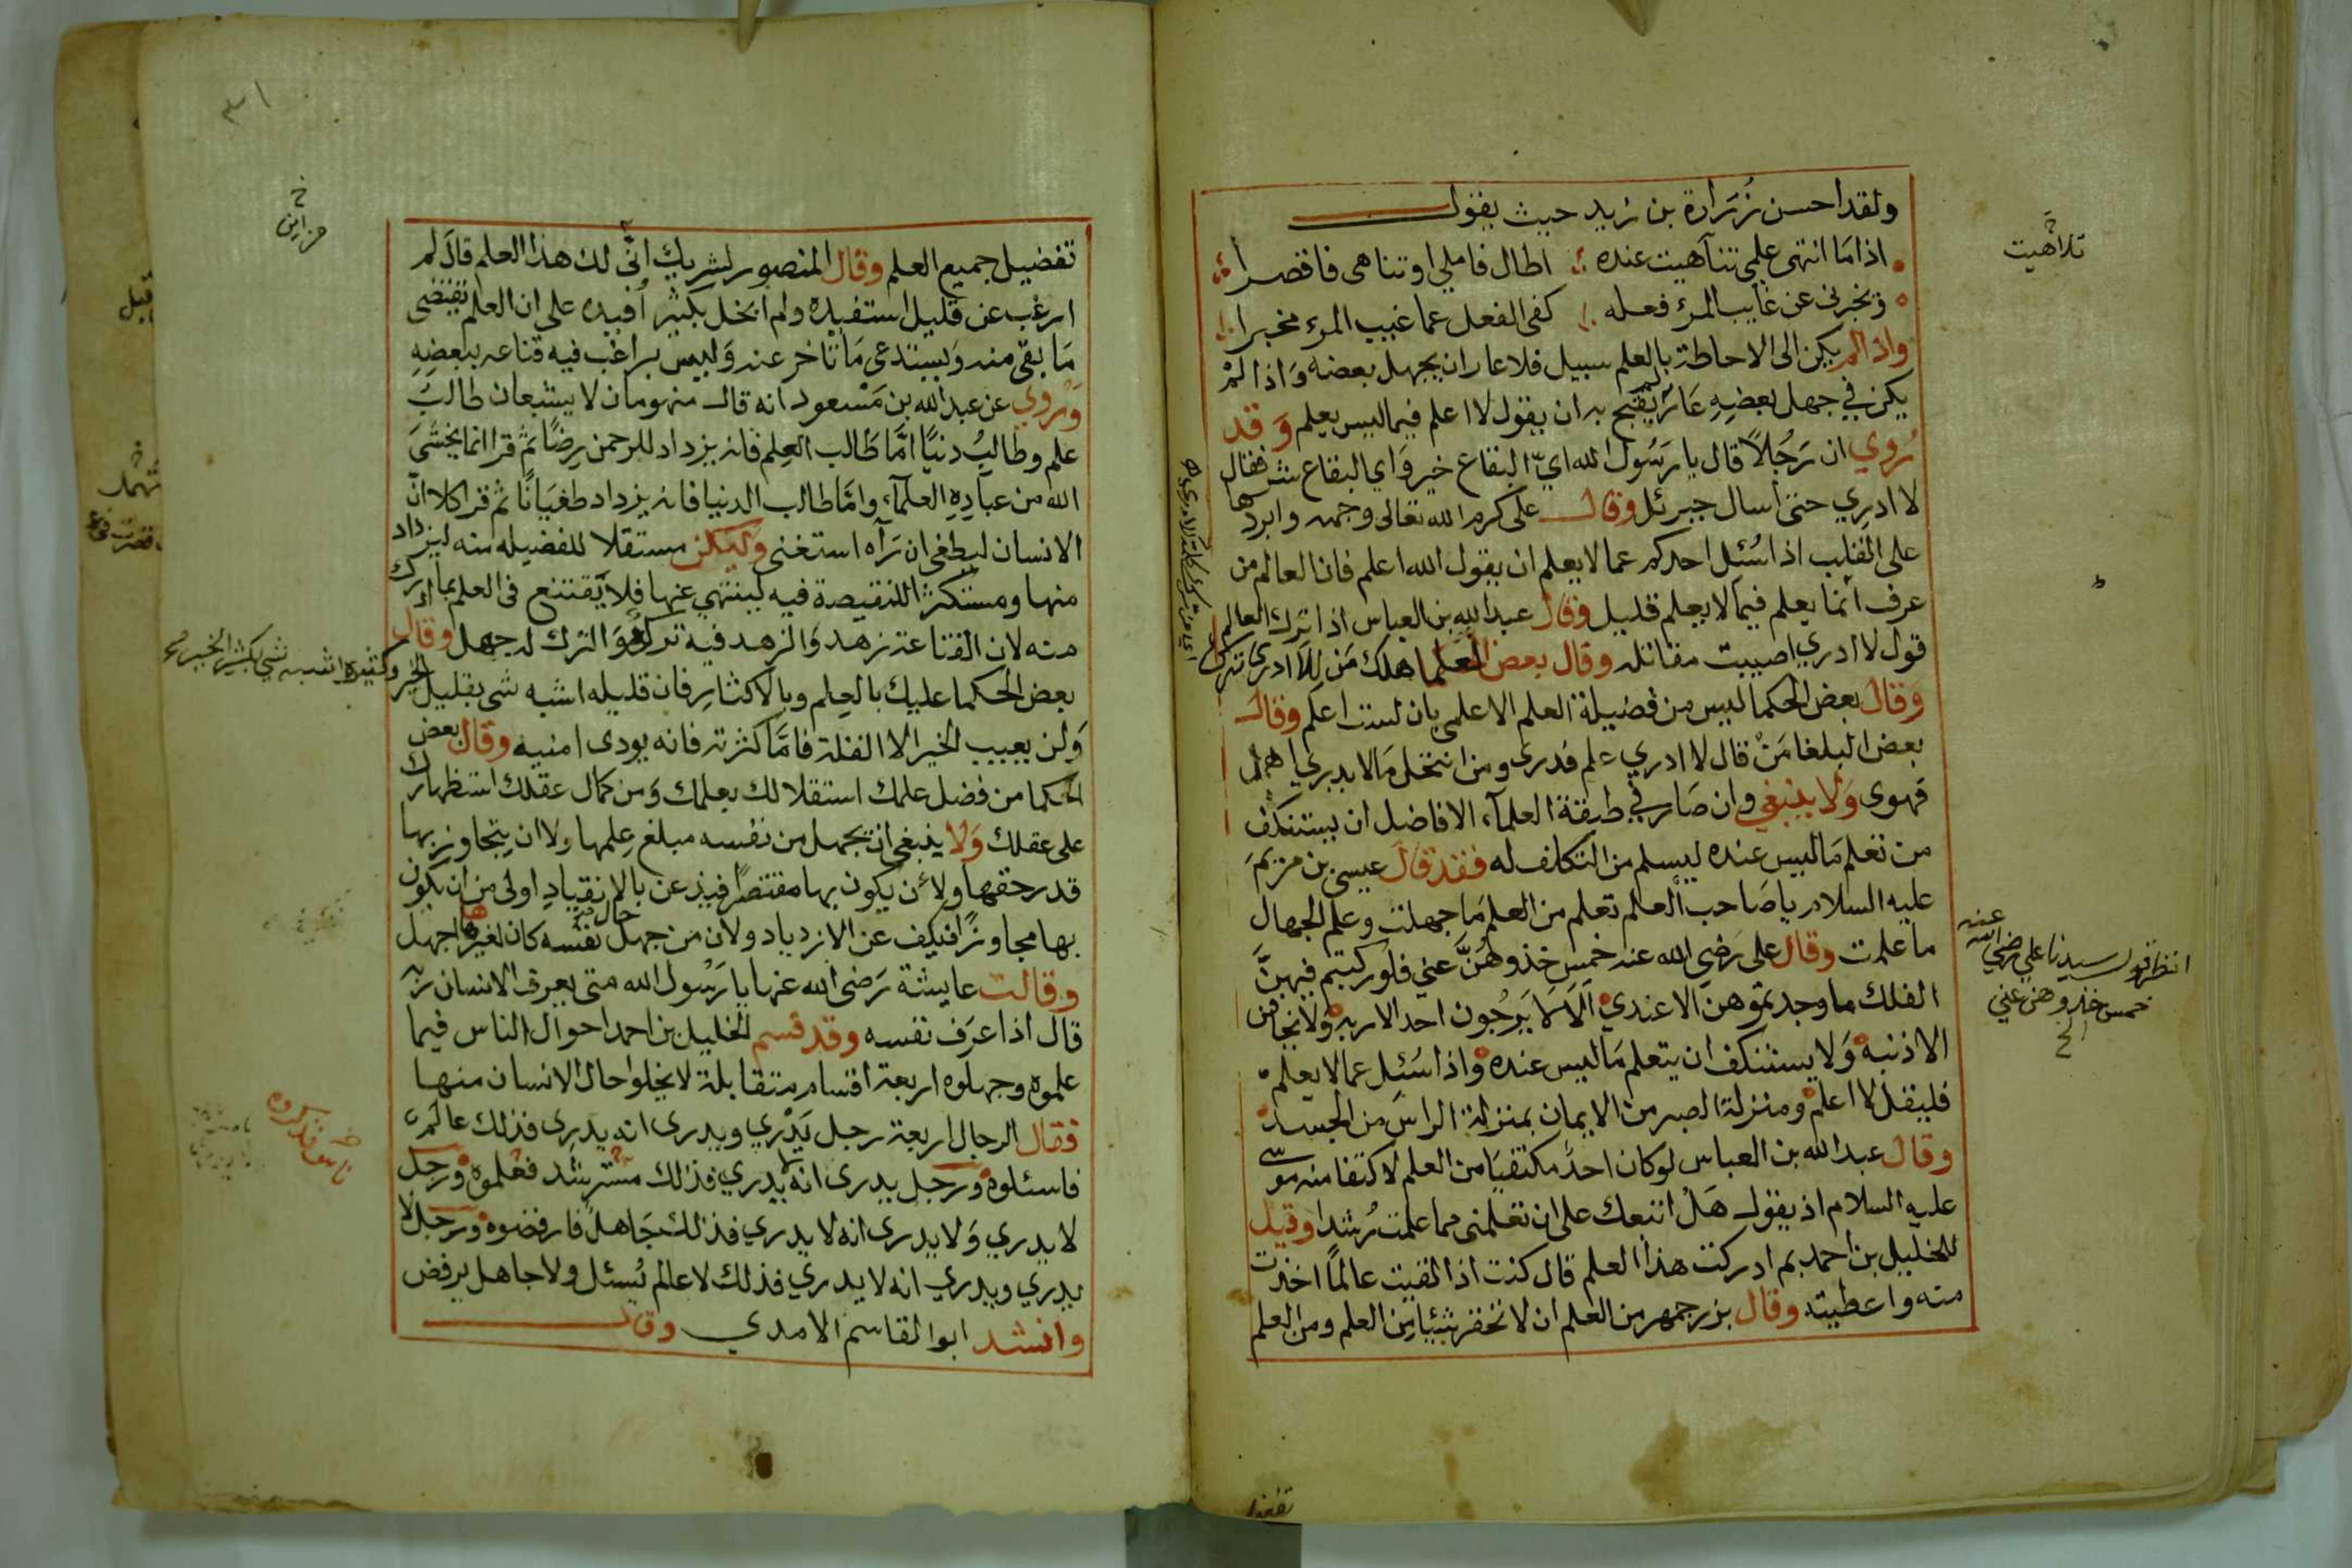 ولقد احسن زرارة بن زيد حيث يقول
اذا ما انتهى علمي تناهيت عنده اطال فاملي او تناهى فاقصرا
وتخبرني عن غايب المرء فعله كفى الفعل عما غيب المرء مخبرا
واذا لم يكن الى الاحاطة بالعلم سبيل فلا عار ان يجهل بعضه واذا لم
يكن في جهل بعضه عار لم يقبح به ان يقول لا اعلم فيما ليس يعلم وقد
روي ان رجلا قال يا رسول الله اي البقاع خير واي البقاع شر فقال
لا ادري حتى اسال جبرئل وقال على كرم الله تعالى وجهه وابردها
على القلب اذا سئل احدكم عما لا يعلم ان يقول الله اعلم فان العالم من
عرف انما يعلم فيما لا يعلم قليل وقال عبد الله بن العباس اذا ترك العالم
قول لا ادري اصيبت مقاتله وقال بعض العلما هلك من لا ادري ترك
وقال بعض الحكما ليس من فضيلة العلم الا علمي بان لست اعلم وقال
بعض البلغا من قال لا ادري علم فدرى ومن انتحل ما لا يدري اهمل
فهوى ولا ينبغي وان صار في طبقة العلماء الافاضل ان يستنكف
من تعلم ما ليس عنده ليسلم من التكلف له فقد قال عيسى بن مريم
عليه السلام يا صاحب العلم تعلم من العلم ما جهلت وعلم الجهال
ما علمت وقال على رضي الله عنه خمس خذوهن عني فلو ركبتم فيهن
الفلك ما وجدتموهن الا عندي الا لا يرجون احد الا ربه ولا يخافن
الا ذنبه ولا يستنكف ان يتعلم ما ليس عنده واذا سئل عما لا يعلم
فليقل لا اعلم ومنزلة الصبر من الايمان بمنزلة الراس من الجسد
وقال عبد الله بن العباس لو كان احد مكتفيا من العلم لاكتفا منه موسى
عليه السلام اذ يقول هل اتبعك على ان تعلمني مما علمت رشدا وقيل
للخليل بن احمد بم ادركت هذا العلم قال كنت اذا لقيت عالما اخذت
منه واعطيته وقال بزرجمهر من العلم ان لا تحقر شيئا من العلم ومن العلم
تلاهيت
انظر قول سيدنا علي رضي الله عنه
خمس خذوهن عني
الخ
تفضيل
تفضيل جميع العلم وقال المنصور لشريك انى لك هذا العلم قال لم
ارغب عن قليل استفيده ولم ابخل بكثير افيده على ان العلم يقتضى
ما بقى منه ويستدعى ما تاخر عنه وليس براغب فيه قناعه ببعضه
وروي عن عبد الله بن مسعود انه قال منهومان لا يشبعان طالب
علم وطالب دنيا اما طالب العلم فانه يزداد للرحمن رضا ثم قرا انما يخشى
الله من عباده العلماء واما طالب الدنيا فانه يزداد طغيانا ثم قرا كلا ان
الانسان ليطغى ان رآه استغنى وليكن مستقلا للفضيله منه ليزداد
منها ومستكثرا للنقيصة فيه لينتهي عنها فلا يقتنع فى العلم بما ادرك
منه لان القناعة زهد والزهد فيه ترك والترك له جهل وقال
بعض الحكما عليك بالعلم وبالاكثار فان قليله اشبه شى بقليل الخير
ولن يعيب الخير الا القلة فاما كثرته فانه يودى امنيه وقال بعض
الحكما من فضل علمك استقلالك بعلمك ومن كمال عقلك استظهارك
على عقلك ولا ينبغي ان يجهل من نفسه مبلغ علمها ولا ان يتجاوز بها
قدر حقها ولأن يكون بها مقتصرا فيذعن بالانقياد اولى من ان يكون
بها مجاوزا فيكف عن الازدياد ولان من جهل حال نفسه كان لغيرها اجهل
وقالت عايشة رضى الله عنها يا رسول الله متى يعرف الانسان ربه
قال اذا عرف نفسه وقد قسم الخليل بن احمد احوال الناس فيما
علموه وجهلوه اربعة اقسام متقابلة لا يخلوا حال الانسان منها
فقال الرجال اربعة رجل يدري ويدرى انه يدرى فذلك عالم
فاسئلوه ورجل يدرى انه لا يدري فذلك مسترشد فعلموه ورجل
لا يدري ولا يدرى انه لا يدري فذلك جاهل فارفضوه ورجل لا
يدري ويدري انه لا يدري فذلك لا عالم يسئل ولا جاهل يرفض
وانشد ابو القاسم الامدي وقال
وكثيره اشبه شي بكثير الخير